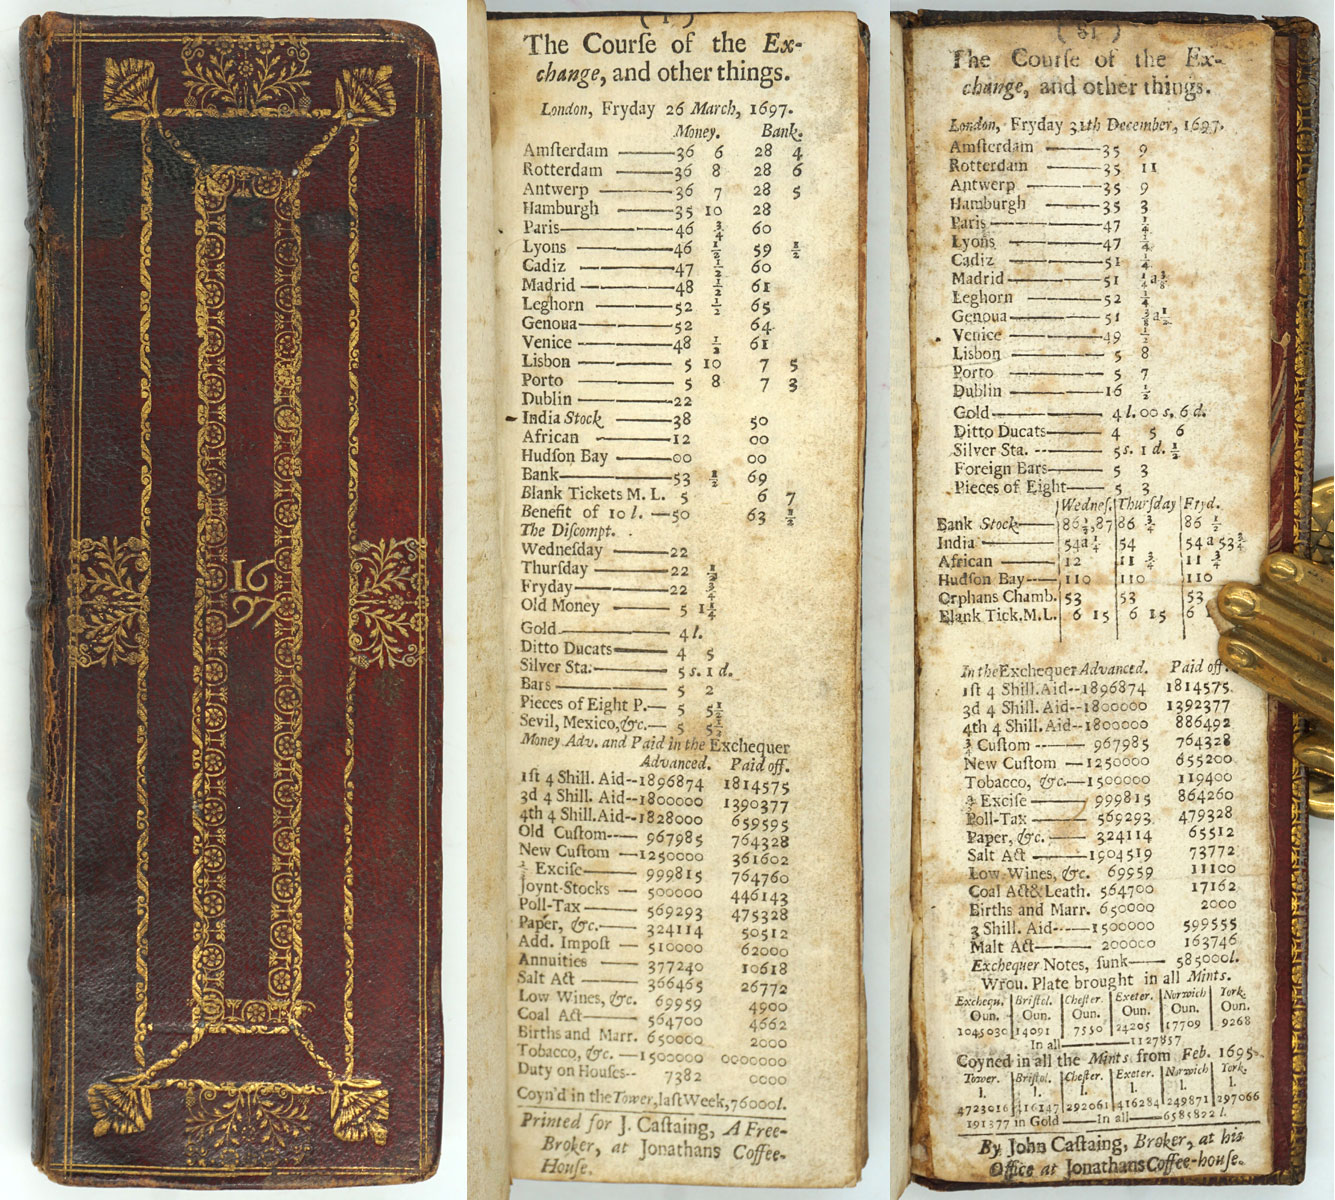 16
97
( 1 )
The Courſe of the Ex-
change, and other things.
London, Fryday 26 March, 1697.
Money. Bank.
Amſterdam 36 6 28 4
Rotterdam 36 8 28 6
Antwerp 36 7 28 5
Hamburgh 35 10 28
Paris 46 3/4 60
Lyons 46 1/2 59 1/2
Cadiz 47 1/2 60
Madrid 48 1/2 61
Leghorn 52 1/2 65
Genoua 52 64
Venice 48 1/2 61
Lisbon 5 10 7 5
Porto 5 8 7 3
Dublin 22
India Stock 38 50
African 12 00
Hudſon Bay 00 00
Bank 53 1/2 69
Blank Tickets M. L. 5 6 7
Benefit of 10 l. 50 63 1/2
The Diſcompt.
Wedneſday 22
Thurſday 22 1/2
Fryday 22 3/4
Old Money 5 1 1/4
Gold 4 l.
Ditto Ducats 4 5
Silver Sta. 5 s. 1 d.
Bars 5 2
Pieces of Eight P. 5 5 1/2
Sevil, Mexico, &c. 5 5 1/2
Money Adv. and Paid in the Exchequer
Advanced. Paid off.
1st 4 Shill. Aid--1896874 1814575
3d 4 Shill. Aid--1800000 1390377
4th 4 Shill. Aid--1828000 659595
Old Cuſtom 967985 764328
New Cuſtom 1250000 361602
Exciſe 999815 764760
Joynt-Stocks 500000 446143
Poll-Tax 569293 475328
Paper, &c. 324114 50512
Add. Impoſt 510000 62000
Annuities 377240 10618
Salt Act 366465 26772
Low Wines, &c. 69959 4900
Coal Act 564700 4662
Births and Marr. 650000 2000
Tobacco, &c. 1500000 0000000
Duty on Houſes-- 7382 0000
Coyn'd in the Tower, laſt Week, 76000l.
Printed for J. Caſtaing, A Free-
Broker, at Jonathans Coffee-
Houſe.
( 31 )
The Courſe of the Ex-
change, and other things.
London, Fryday 31th December, 1697.
Amſterdam 35 9
Rotterdam 35 11
Antwerp 35 9
Hamburgh 35 3
Paris 47 1/4
Lyons 47 1/4
Cadiz 51 1/4
Madrid 51 1/4 a 3/8
Leghorn 52 1/4
Genoua 51 3/8 a 1/2
Venice 49 1/2
Lisbon 5 8
Porto 5 7
Dublin 16 1/2
Gold 4 l. 00 s. 6 d.
Ditto Ducats 4 5 6
Silver Sta. -- 5 s. 1 d. 1/2
Foreign Bars 5 3
Pieces of Eight 5 3
Wedneſ. Thurſday Fryd.
Bank Stock 86 1/2, 87 86 3/4 86 1/2
India 54 a 1/4 54 54 a 53 3/4
African 12 11 3/4 11 3/4
Hudſon Bay 110 110 110
Orphans Chamb. 53 53 53
Blank Tick. M.L. 6 15 6 15 6
In the Exchequer Advanced. Paid off.
1st 4 Shill. Aid--1896874 1814575
3d 4 Shill. Aid--1800000 1392377
4th 4 Shill. Aid--1800000 886492
3/4 Cuſtom -- 967985 764328
New Cuſtom 1250000 655200
Tobacco, &c. 1500000 119400
Exciſe 999815 864260
Poll-Tax 569293 479328
Paper, &c. 324114 65512
Salt Act 1904519 73772
Low Wines, &c. 69959 11100
Coal Act & Leath. 564700 17162
Births and Marr. 650000 2000
3 Shill. Aid 1500000 599555
Malt Act 200000 163746
Exchequer Notes, ſunk 585000l.
Wrou. Plate brought in all Mints.
Exchequ. Briſtol. Cheſter. Exeter. Norwich York.
Oun. Oun. Oun. Oun. Oun. Oun.
1045030 14091 7550 24205 17709 9268
In all 1127857
Coyned in all the Mints from Feb. 1695.
Tower. Briſtol. Cheſter. Exeter. Norwich York.
l. l. l. l. l. l.
4723016 416147 292061 416284 249871 297066
191377 in Gold In all 6585822 l.
By John Caſtaing, Broker, at his
Office at Jonathans Coffee-houſe.